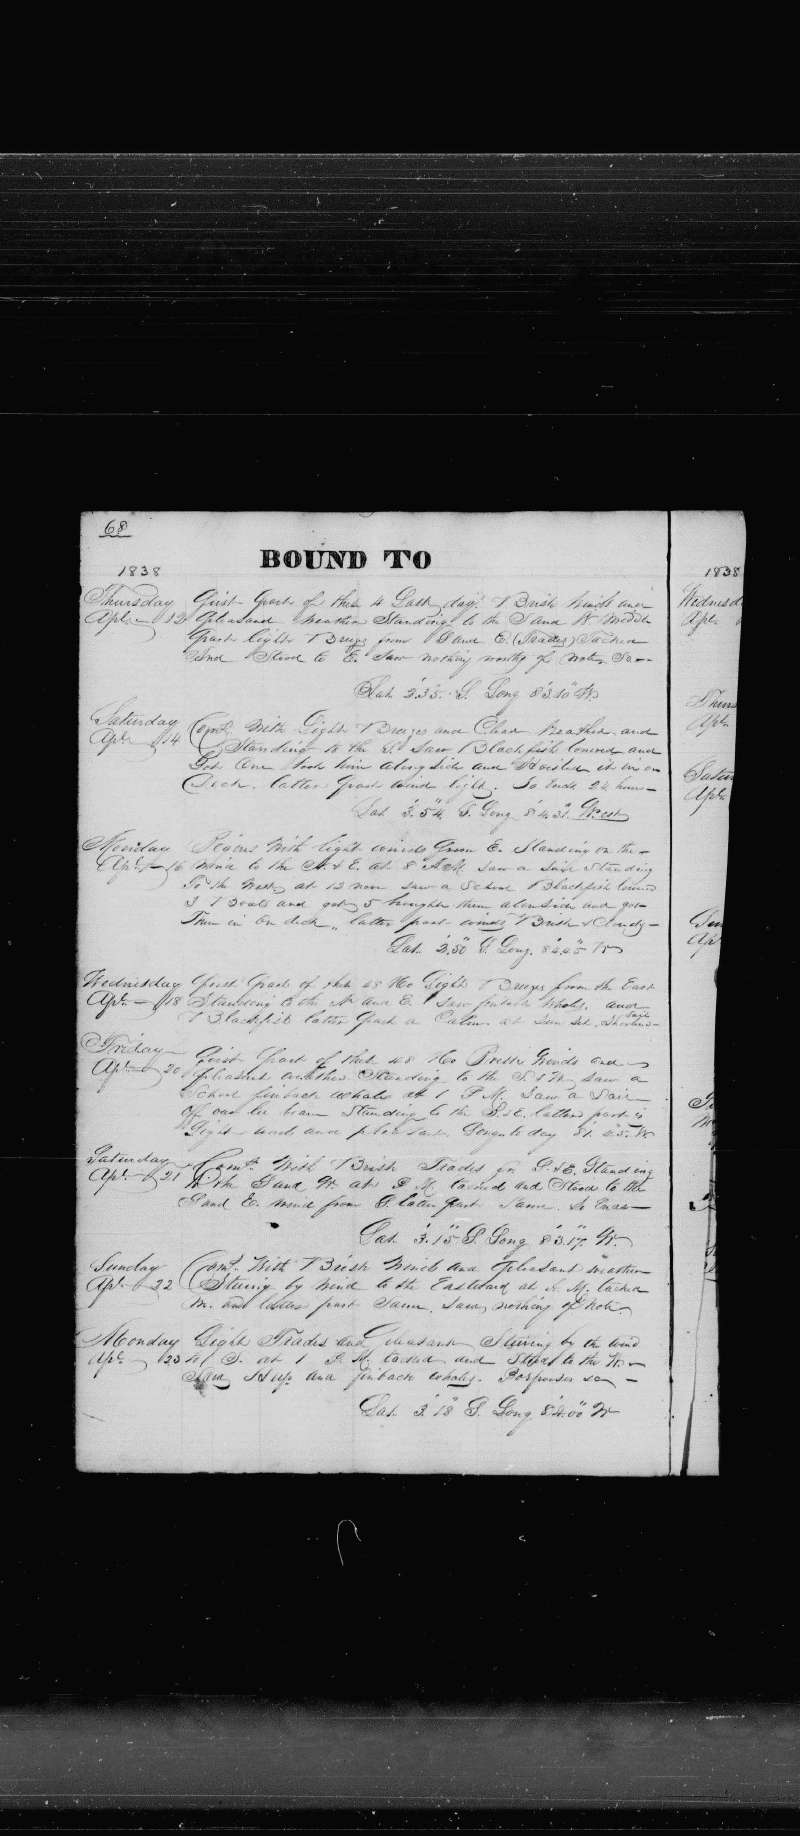 68
BOUND TO
1838
Thursday First Part of these 4 Last days Brisk winds and
Apl. 12 pleasand weather Standing to the S and W Middle
Part light Breezes from S and E. (Trades) Tacked
and Stood to E. Saw nothing worthy of note. So
Lat. 2.35 S. Long 83.10 W.
Saturday Comt. With Light Breezes and Clear Weather and
Apl. 14 Standing to the S. Saw Blackfish lowered and
Got One took him along side and Hoisted it in on
Deck. latter Part wind light. So Ends 24 hours
Lat 3.54 S. Long 84.31 West
Monday Begins With light winds from E. Standing on the
Apl. 16 wind to the N. & E. at 8 AM Saw a Sail Standing
To the West, at 12 noon saw a School Blackfish lowered
3 Boats and got 5 brought them alongside and got
Them in On deck, latter part winds Brisk & Cloudy
Lat. 3.50 S. Long. 84.45 W
Wednesday First Part of these 48 Ho Light Breezes from the East
Apl. 18 Standing to the N and E. Saw finback Whals. and
Blackfish latter Part a Calm at Sun Set. Shortened Sail
Friday First Part of these 48 Ho Brisk Winds and
Apl. 20 pleasant weather Standing to the S. & W. saw a
School finback whales at 1 P M. Saw a Sail
Off our lee beam Standing to the S. & E. latter part is
Light wind and pleasant. Longitude 81.45 W
Saturday Comt. With Brisk Trades from S. & E. Standing
Apl. 21 to the S and W. at P. M. tacked and Stood to the
S and E. wind from S. latter part Same. So Ends
Lat. 3.15 S. Long 83.17 W.
Sunday Comt. With Brisk Winds and pleasant weather
Apl. 22 Stering by wind to the Eastward at A. M. tacked
M. and latter part Same. Saw nothing of note.
Monday Light Trades and Pleasant Stering by the wind
Apl. 23 S. at 1 P. M. tacked and Steps to the W.
Saw Ship and finback whales. Porpoises
Lat. 3.18 S. Long 84.00 W
1838
Wednesd
Apl.
Thurs
Apl.
Satur
Apl.
Sun
Ap